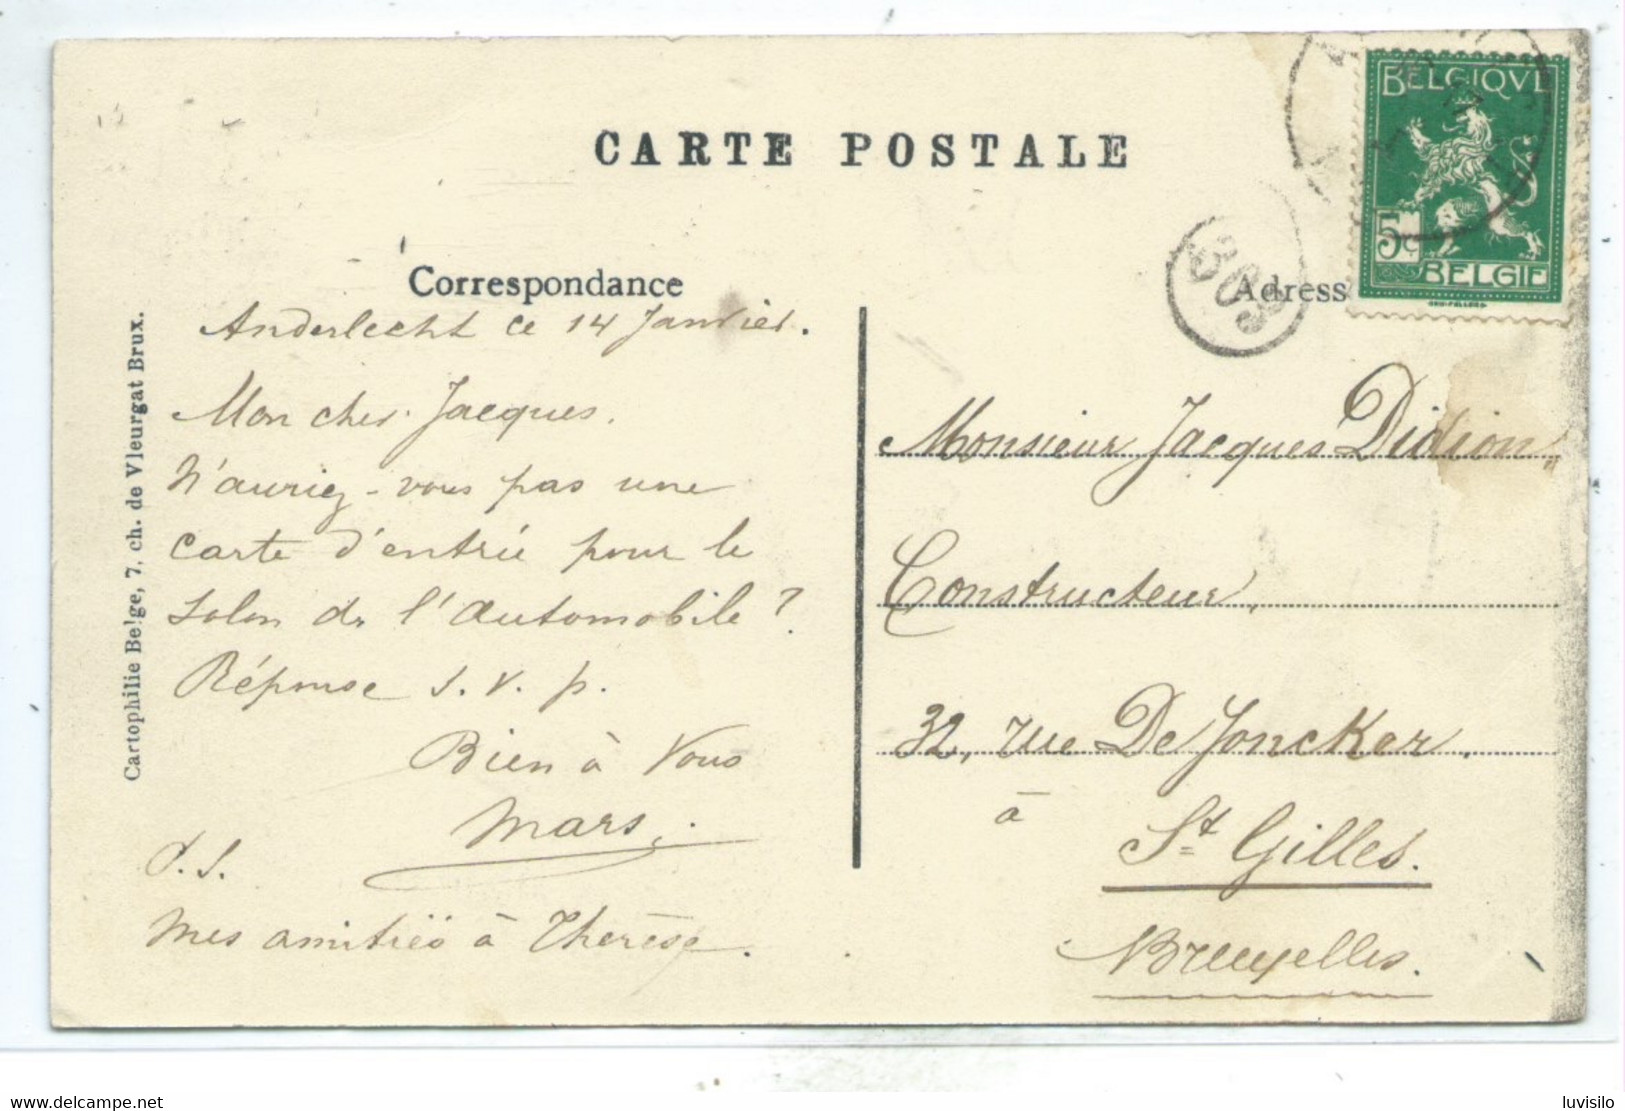 CARTE POSTALE
BELGIQVE
5c
BELGIE
Correspondance
Anderlecht ce 14 Janvier.
Mon cher Jacques.
N'auriez-vous pas une
carte d'entrée pour le
salon de l'automobile ?
Réponse s. v. p.
Bien à Vous
Mars.
P.S.
Mes amitiés à Thérèse.
Cartophilie Belge, 7, ch. de Vleurgat Brux.
Adress
Monsieur Jacques Didion,
Constructeur,
32, rue De Joncker.
à
St Gilles.
Bruxelles.
luvisilo